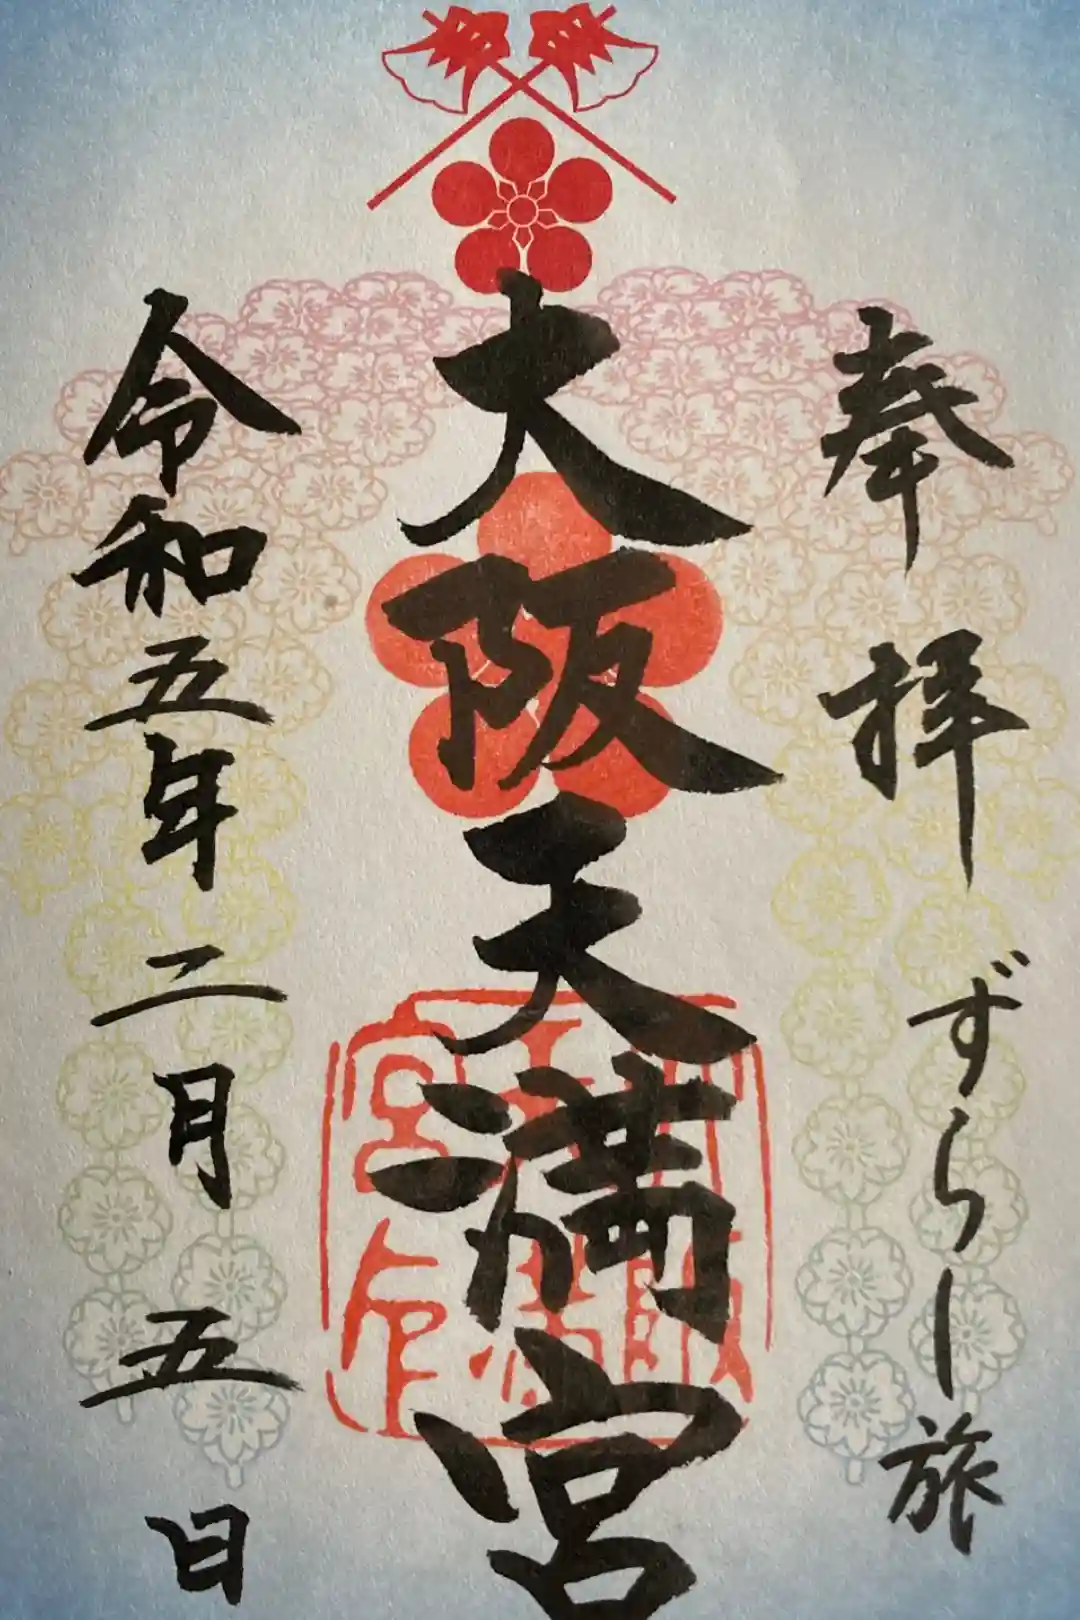 奉拝 ずらし旅
大阪天満宮
令和五年二月五日